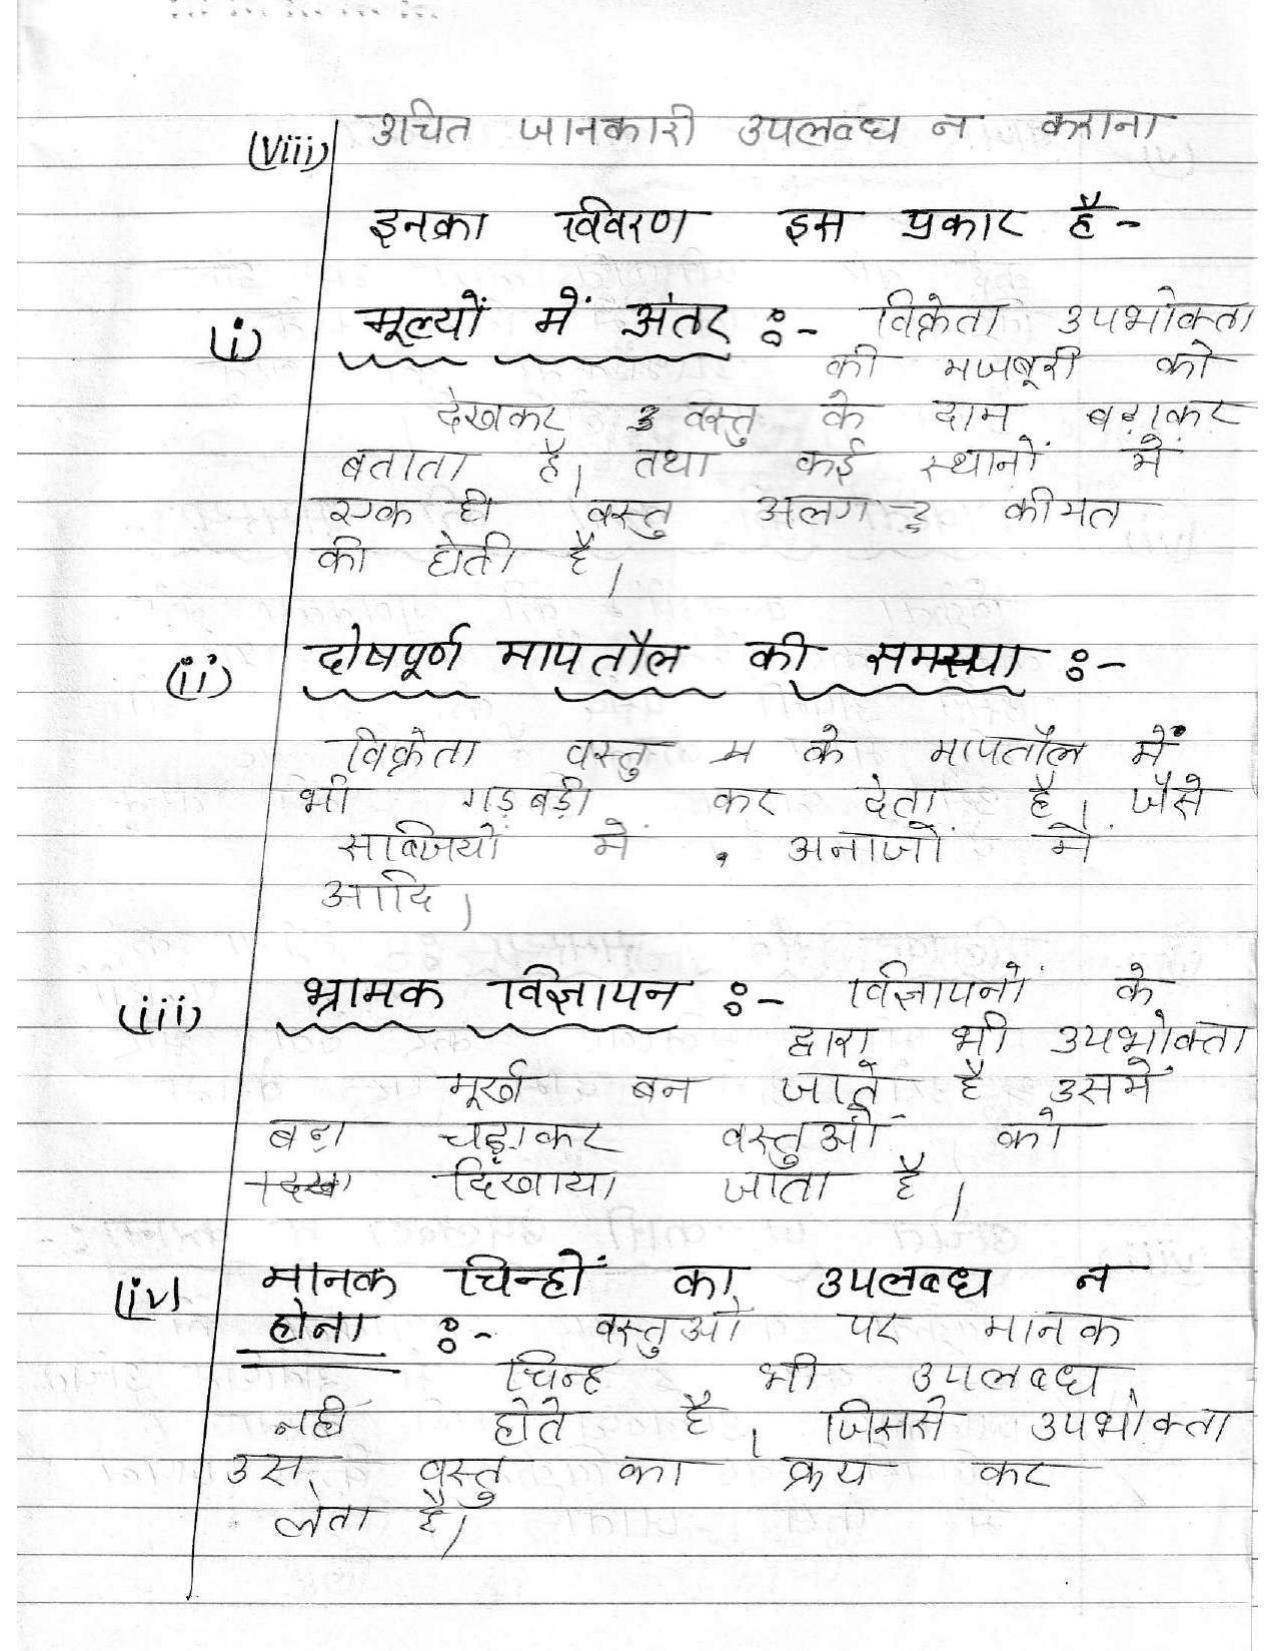 (viii) उचित जानकारी उपलब्ध न कराना
इनका विवरण इस प्रकार है -
(i) मूल्यों में अंतर :- विक्रेता उपभोक्ता
की मजबूरी को
देखकर वस्तु के दाम बढ़ाकर
बताता है। तथा कई स्थानों में
एक ही वस्तु अलग-२ कीमत
की होती है।
(ii) दोषपूर्ण मापतौल की समस्या :-
विक्रेता वस्तु के मापतौल में
भी गड़बड़ी कर देता है। जैसे
सब्जियों में , अनाजों में
आदि।
(iii) भ्रामक विज्ञापन :- विज्ञापनों के
द्वारा भी उपभोक्ता
मूर्ख बन जाते है उसमें
बढ़ा चढ़ाकर वस्तुओं को
दिखाया जाता है।
(iv) मानक चिन्हों का उपलब्ध न
होना :- वस्तुओं पर मानक
चिन्ह भी उपलब्ध
नहीं होते है। जिससे उपभोक्ता
उस वस्तु का क्रय कर
लेता है।